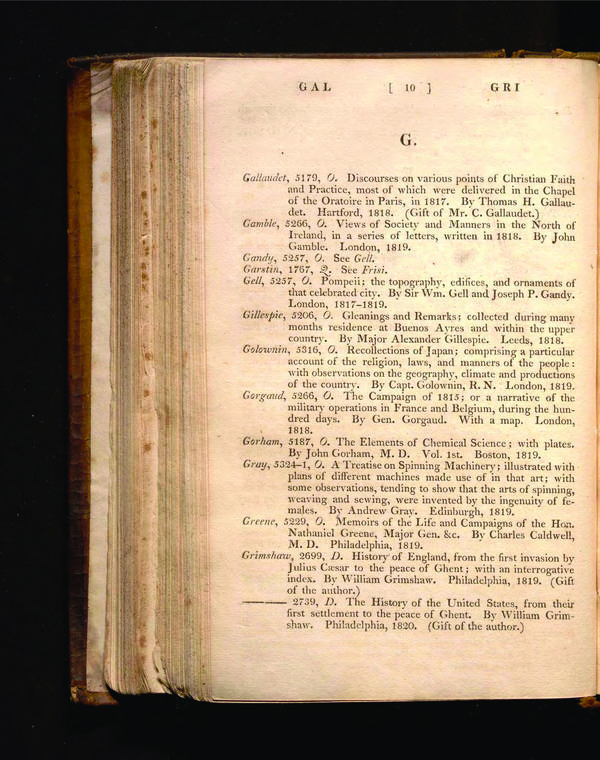 GAL [ 10 ] GRI
G.
Gallaudet, 5179, O. Discourses on various points of Christian Faith
and Practice, most of which were delivered in the Chapel
of the Oratoire in Paris, in 1817. By Thomas H. Gallau-
det. Hartford, 1818. (Gift of Mr. C. Gallaudet.)
Gamble, 5266, O. Views of Society and Manners in the North of
Ireland, in a series of letters, written in 1818. By John
Gamble. London, 1819.
Gandy, 5257, O. See Gell.
Garstin, 1767, Q. See Frisi.
Gell, 5257, O. Pompeii; the topography, edifices, and ornaments of
that celebrated city. By Sir Wm. Gell and Joseph P. Gandy.
London, 1817-1819.
Gillespie, 5206, O. Gleanings and Remarks; collected during many
months residence at Buenos Ayres and within the upper
country. By Major Alexander Gillespie. Leeds, 1818.
Golownin, 5316, O. Recollections of Japan; comprising a particular
account of the religion, laws, and manners of the people:
with observations on the geography, climate and productions
of the country. By Capt. Golownin, R. N. London, 1819.
Gorgaud, 5266, O. The Campaign of 1815; or a narrative of the
military operations in France and Belgium, during the hun-
dred days. By Gen. Gorgaud. With a map. London,
1818.
Gorham, 5187, O. The Elements of Chemical Science; with plates.
By John Gorham, M. D. Vol. 1st. Boston, 1819.
Gray, 5324-1, O. A Treatise on Spinning Machinery; illustrated with
plans of different machines made use of in that art; with
some observations, tending to show that the arts of spinning,
weaving and sewing, were invented by the ingenuity of fe-
males. By Andrew Gray. Edinburgh, 1819.
Greene, 5229, O. Memoirs of the Life and Campaigns of the Hon.
Nathaniel Greene, Major Gen. &c. By Charles Caldwell,
M. D. Philadelphia, 1819.
Grimshaw, 2699, D. History of England, from the first invasion by
Julius Cæsar to the peace of Ghent; with an interrogative
index. By William Grimshaw. Philadelphia, 1819. (Gift
of the author.)
——— 2739, D. The History of the United States, from their
first settlement to the peace of Ghent. By William Grim-
shaw. Philadelphia, 1820. (Gift of the author.)